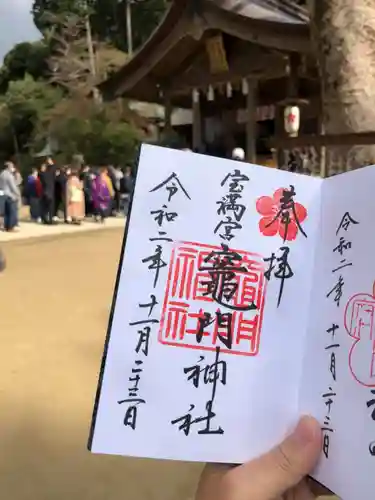 奉拝
宝満宮
竈門神社
竈門
神社
令和二年十一月二十三日
令和二年十一月二十三日